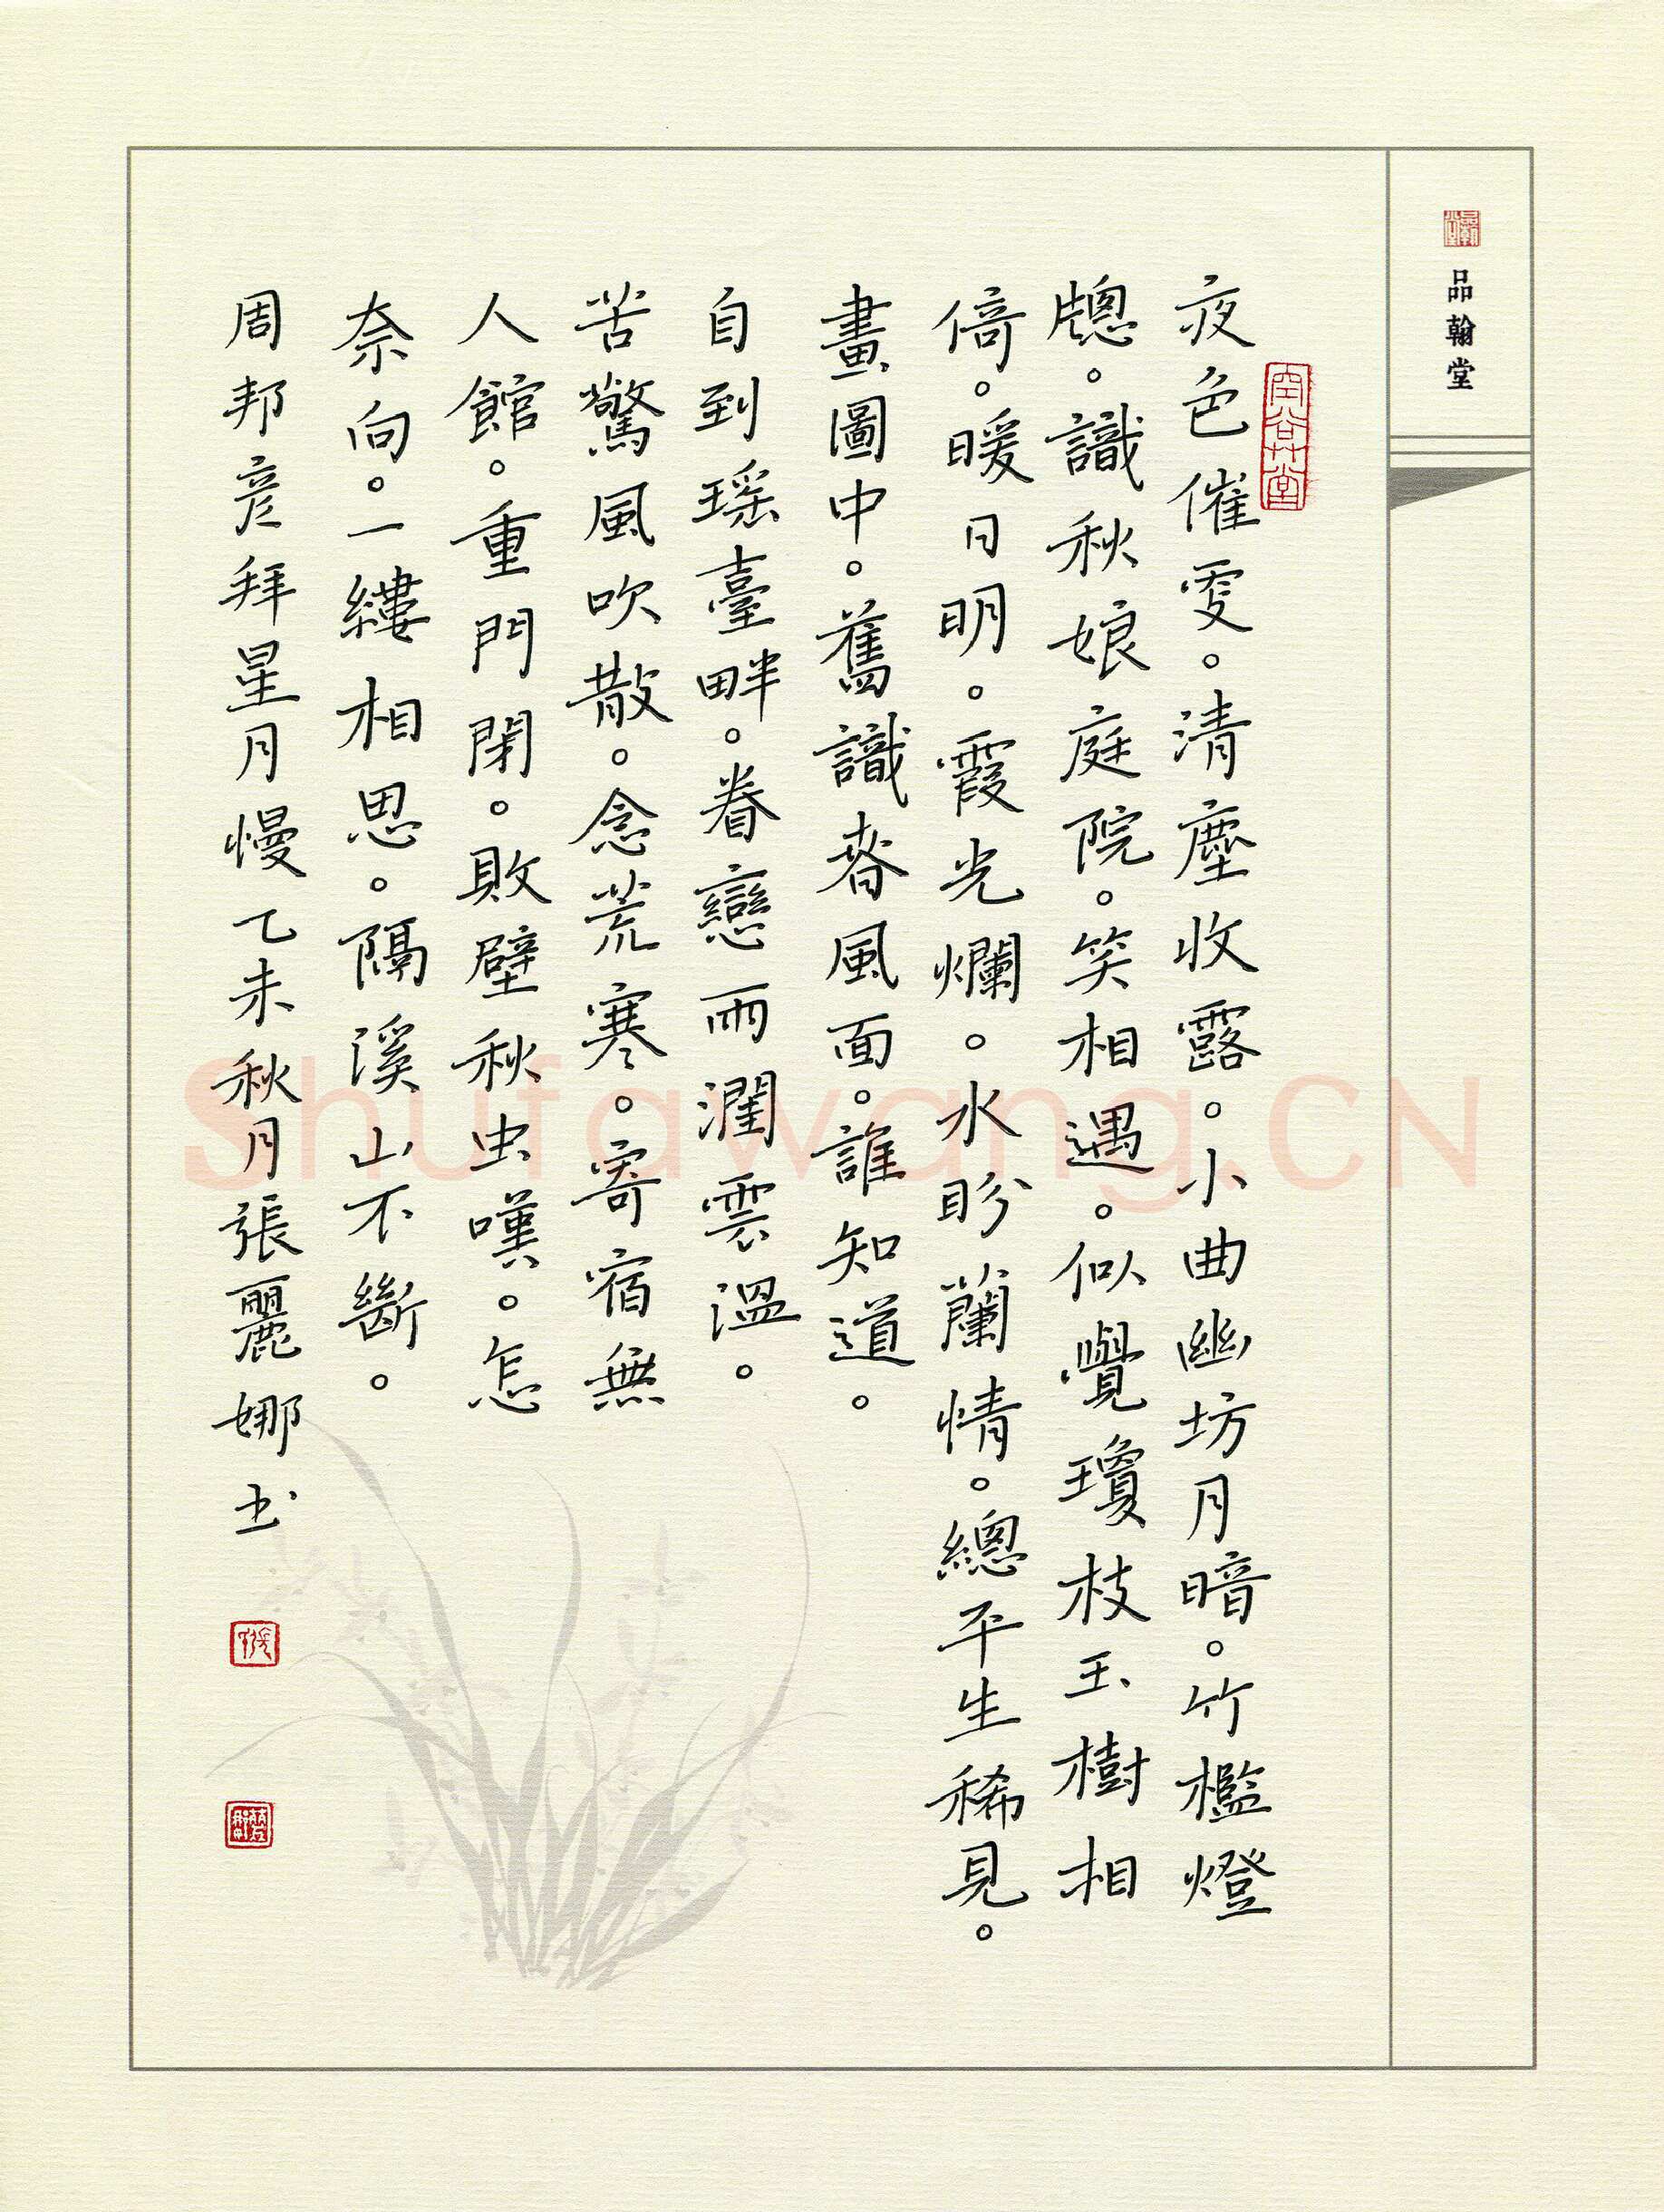 品翰堂
夜色催更。清塵收露。小曲幽坊月暗。竹檻燈
牕。識秋娘庭院。笑相遇。似覺瓊枝玉樹相
倚。暖日明。霞光爛。水盼蘭情。總平生稀見。
畫圖中。舊識春風面。誰知道。
自到瑶臺畔。眷戀雨潤雲溫。
苦驚風吹散。念荒寒。寄宿無
人館。重門閉。敗壁秋虫嘆。怎
奈向。一縷相思。隔溪山不斷。
周邦彦拜星月慢乙未秋月張麗娜书
Shufawang.CN